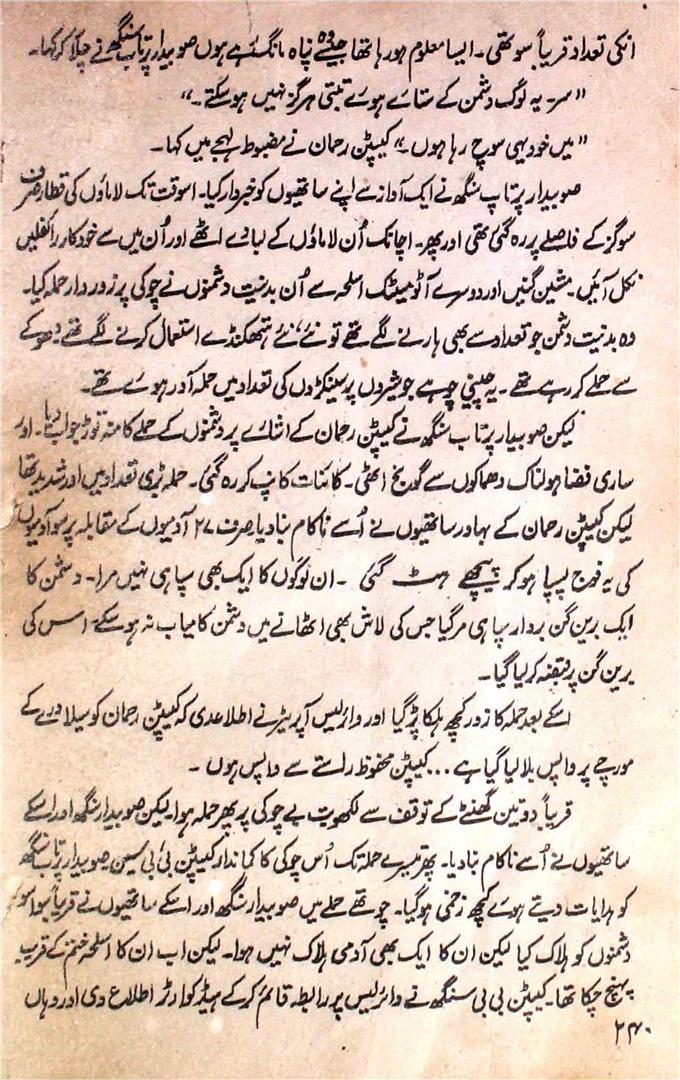 انکی تعداد قریباً سو تھی۔ ایسا معلوم ہو رہا تھا جیسے وہ پناہ مانگ رہے ہوں صوبیدار پرتاب سنگھ نے چلا کر کہا۔
"سر۔ یہ لوگ دشمن کے ستائے ہوئے تبتی ہرگز نہیں ہو سکتے۔"
"میں خود یہی سوچ رہا ہوں۔" کیپٹن رحمان نے مضبوط لہجے میں کہا۔
صوبیدار پرتاپ سنگھ نے ایک آواز سے اپنے ساتھیوں کو خبردار کیا۔ اسوقت تک لاماؤں کی قطار صرف
سوگز کے فاصلے پر رہ گئی تھی اور پھر۔ اچانک اُن لاماؤں کے لبادے اٹھے اور اُن میں سے خودکار رائفلیں
نکل آئیں۔ مشین گنیں اور دوسرے آٹومیٹک اسلحہ سے اُن بدنیت دشمنوں نے چوکی پر زور دار حملہ کیا۔
وہ بدنیت دشمن جو تعداد سے بھی ہارنے لگے تھے تو نئے، نئے ہتھکنڈے استعمال کرنے لگے تھے دھوکے
سے حملے کر رہے تھے۔ یہ چینی چوہے جو شیروں پر سینکڑوں کی تعداد میں حملہ آور ہوئے تھے۔
لیکن صوبیدار پرتاب سنگھ نے کیپٹن رحمان کے اشارے پر دشمنوں کے حملے کا منہ توڑ جواب دیا۔ اور
ساری فضا ہولناک دھماکوں سے گونج اٹھی۔ کائنات کانپ کر رہ گئی۔ حملہ بڑی تعداد میں اور شدید تھا
لیکن کیپٹن رحمان کے بہادر ساتھیوں نے اُسے ناکام بنا دیا صرف ۲۷ آدمیوں کے مقابلہ پر سو آدمیوں
کی یہ فوج پسپا ہو کر پیچھے ہٹ گئی ۔ ان لوگوں کا ایک بھی سپاہی نہیں مرا۔ دشمن کا
ایک برین گن بردار سپاہی مرگیا جس کی لاش بھی اٹھانے میں دشمن کامیاب نہ ہو سکے۔ اس کی
برین گن پر قبضہ کر لیا گیا۔
اسکے بعد حملہ کا زور کچھ ہلکا پڑ گیا اور وائرلیس آپریٹر نے اطلاع دی کہ کیپٹن رحمان کو سیلا ورے کے
مورچے پر واپس بلا لیا گیا ہے... کیپٹن محفوظ راستے سے واپس ہوں ۔
قریباً دو تین گھنٹے کے توقف سے لکھویت بے چوکی پر پھر حملہ ہوا۔ لیکن صوبیدار سنگھ اور اسکے
ساتھیوں نے اُسے ناکام بنا دیا۔ پھر تیسرے حملہ تک اُس چوکی کا کمانڈار کیپٹن بی بی سین صوبیدار پرتاب سنگھ
کو ہدایات دیتے ہوئے کچھ زخمی ہوگیا۔ چوتھے حملے میں صوبیدار سنگھ اور اسکے ساتھیوں نے قریباً سوا سو
دشمنوں کو ہلاک کیا لیکن ان کا ایک بھی آدمی ہلاک نہیں ہوا۔ لیکن اب ان کا اسلحہ ختم کے قریب
پہنچ چکا تھا۔ کیپٹن بی بی سنگھ نے وائرلیس پر رابطہ قائم کرکے ہیڈ کوارٹر اطلاع دی اور وہاں
۲۴۰